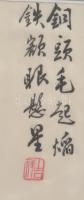 銅頭毛起焰
鉄額眼懸星